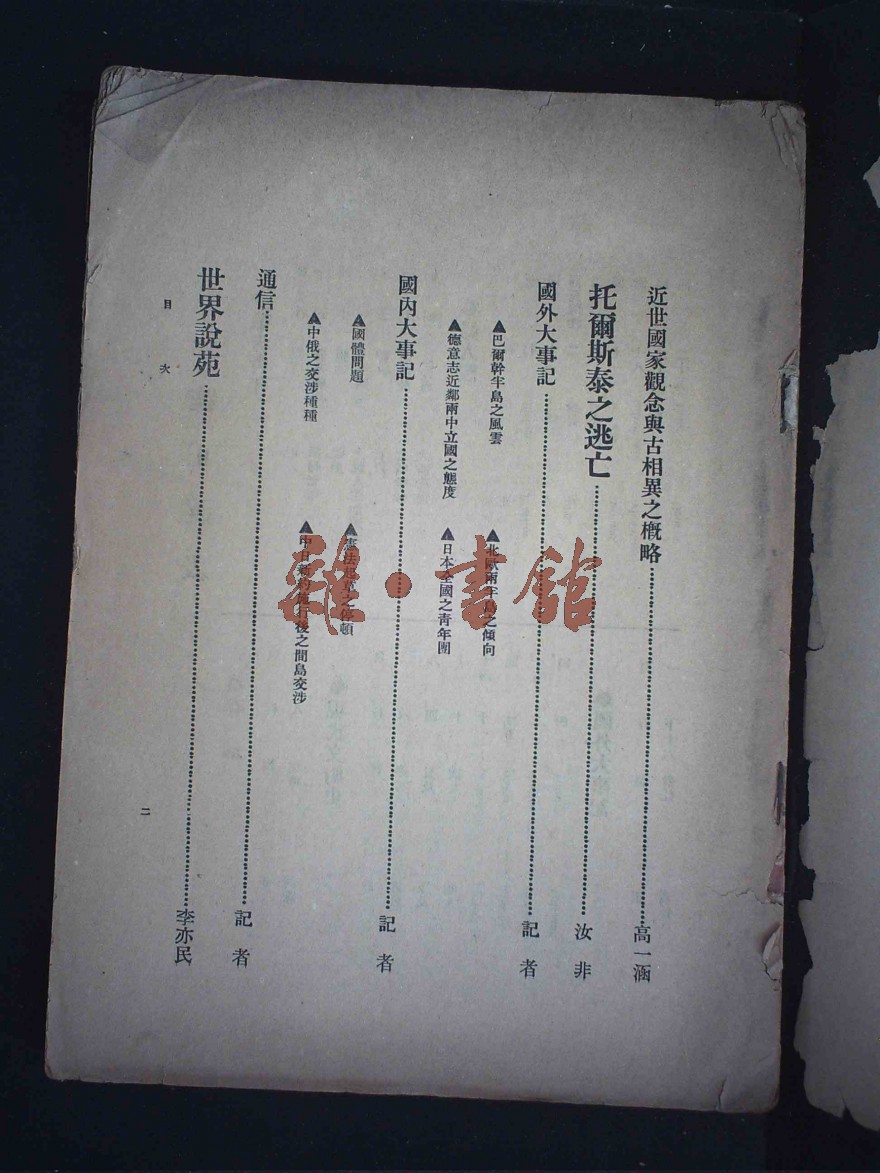 近世國家觀念與古相異之槪略⋯⋯高一涵
托爾斯泰之逃亡⋯⋯汝非
國外大事記⋯⋯記者
▲巴爾幹半島之風雲 ▲北歐兩半島之傾向
▲德意志近鄰兩中立國之態度 ▲日本全國之青年團
國內大事記⋯⋯記者
▲國體問題 ▲憲法起草之停頓
▲中俄之交涉種種 ▲中日新約施行後之間島交涉
通信⋯⋯記者
世界說苑⋯⋯李亦民
目次
二
雜·書館